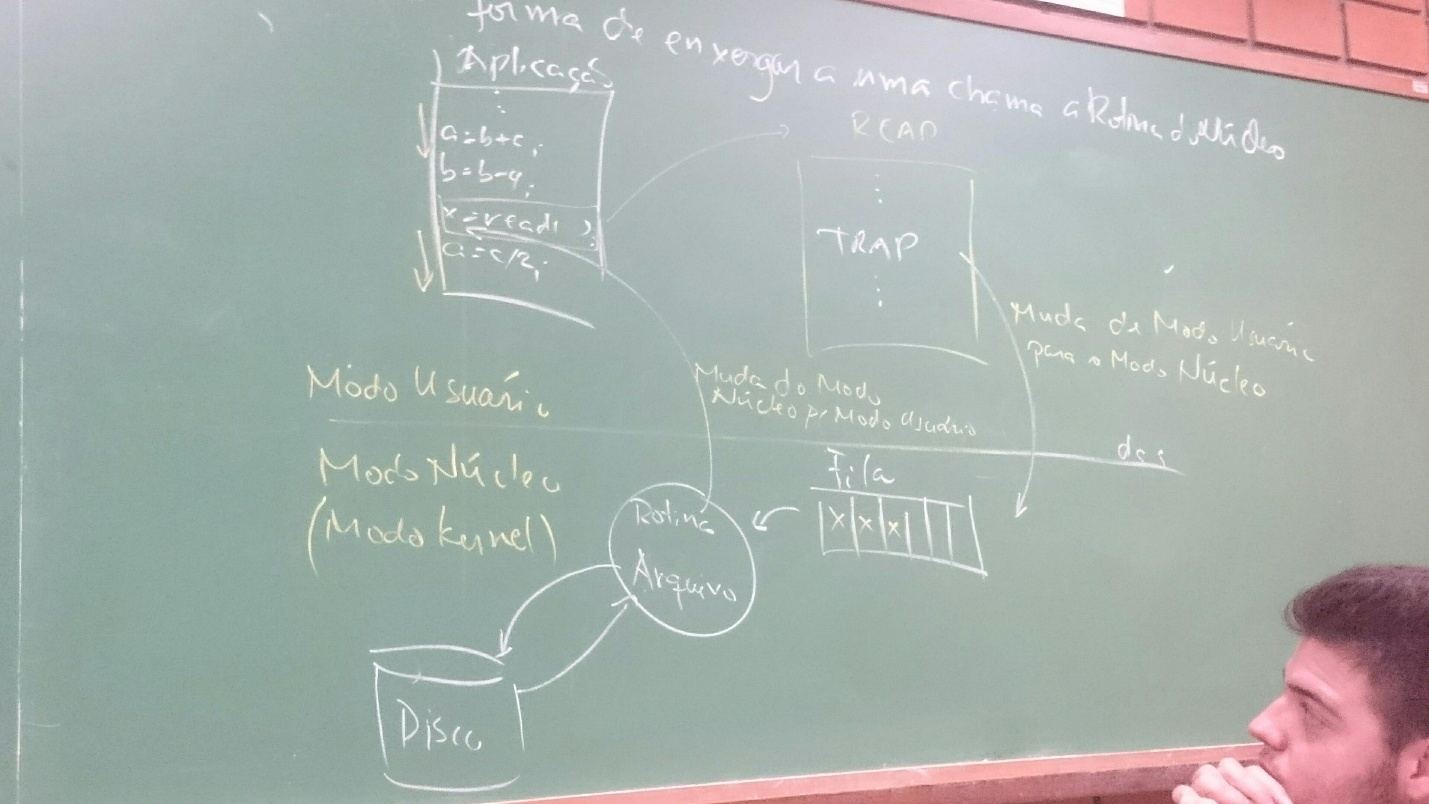 forma de enxergar a uma chama a Rotina do Núcleo
Aplicaçã
:
a=b+c;
b=b-a;
x=read( );
a=c/2;
READ
TRAP
Muda de Modo Usuário
para o Modo Núcleo
Modo Usuário
Muda do Modo
Núcleo p/ Modo Usuário
Modo Núcleo
(Modo Kernel)
Fila
X X X
Rotina
Arquivo
Disco